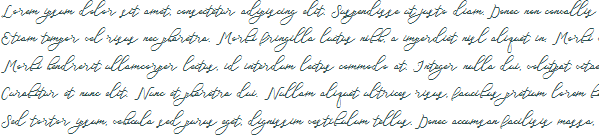 Lorem ipsum dolor sit amet, consectetur adipiscing elit. Suspendisse et justo diam. Donec non convallis
Etiam tempor vel risus nec pharetra. Morbi fringilla luctus nibh, a imperdiet nisl aliquet in. Morbi
Morbi hendrerit ullamcorper lectus, id interdum lectus commodo at. Integer nulla dui, volutpat vitae
Curabitur et nunc elit. Nunc et pharetra dui. Nullam aliquet ultrices risus, faucibus pretium lorem
Sed tortor ipsum, vehicula sed purus eget, dignissim vestibulum tellus. Donec accumsan facilisis massa,